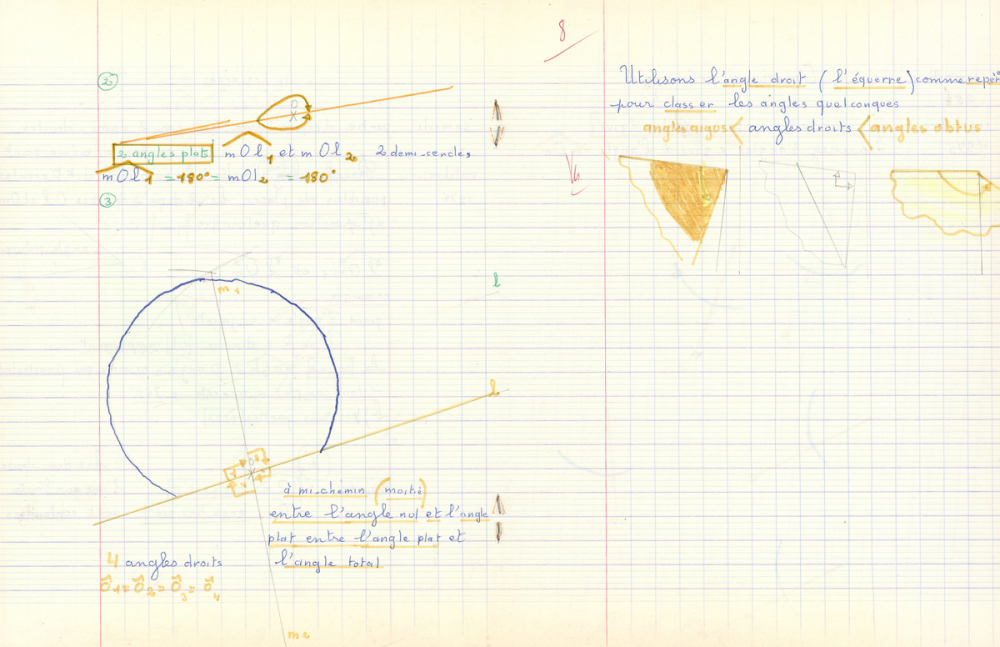 8
②
O
2 angles plats mOl1 et mOl2 2 demi-cercles
mOl1 = 180° = mOl2 = 180°
③
l
m1
l
O
à mi-chemin (moitié)
entre l'angle nul et l'angle
plat entre l'angle plat et
l'angle total
4 angles droits
Ô1=Ô2=Ô3=Ô4
m2
Utilisons l'angle droit (l'équerre) comme repère
pour classer les angles quelconques
angles aigus < angles droits < angles obtus